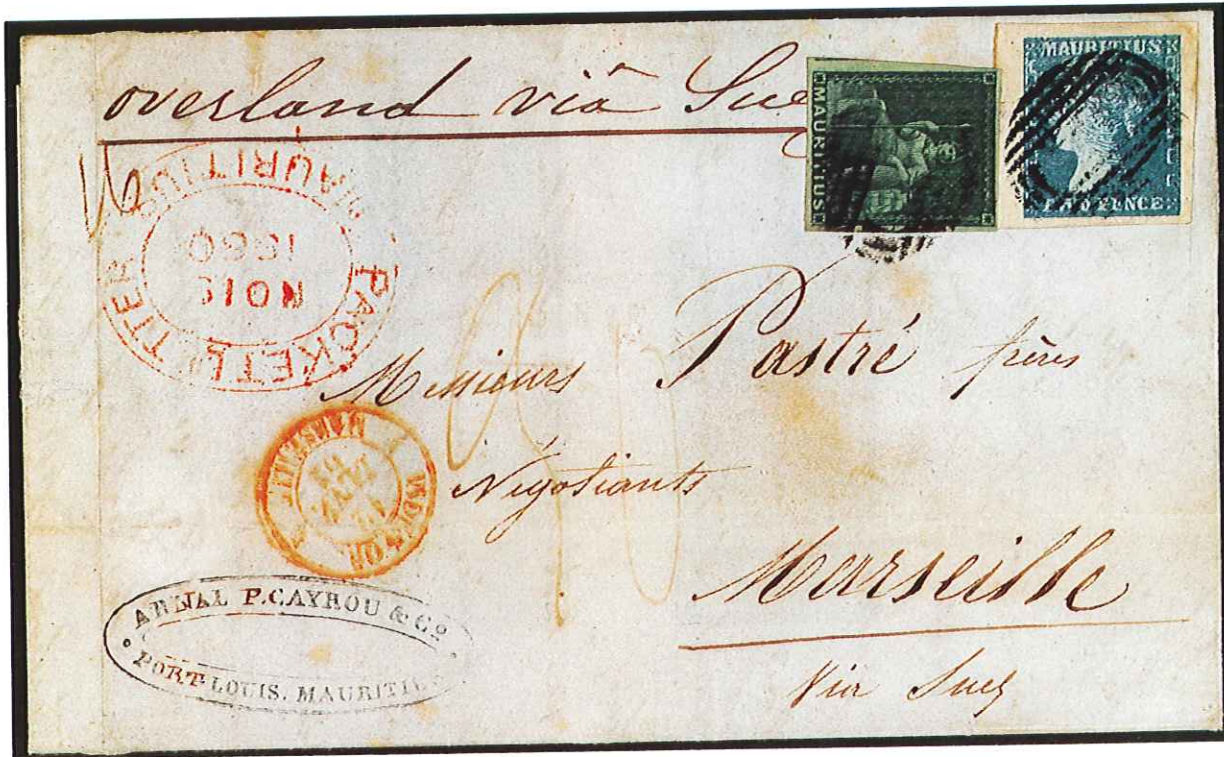 overland via Suez
MAURITIUS
MAURITIUS
TWO PENCE
PACKET LETTER MAURITIUS
NO 13
1860
Messieurs Pastré frères
Négotiants
Marseille
Via Suez
MARSEILLE
JANV.
61
ARNAL P.CAYROU & Co
PORT-LOUIS. MAURITIUS